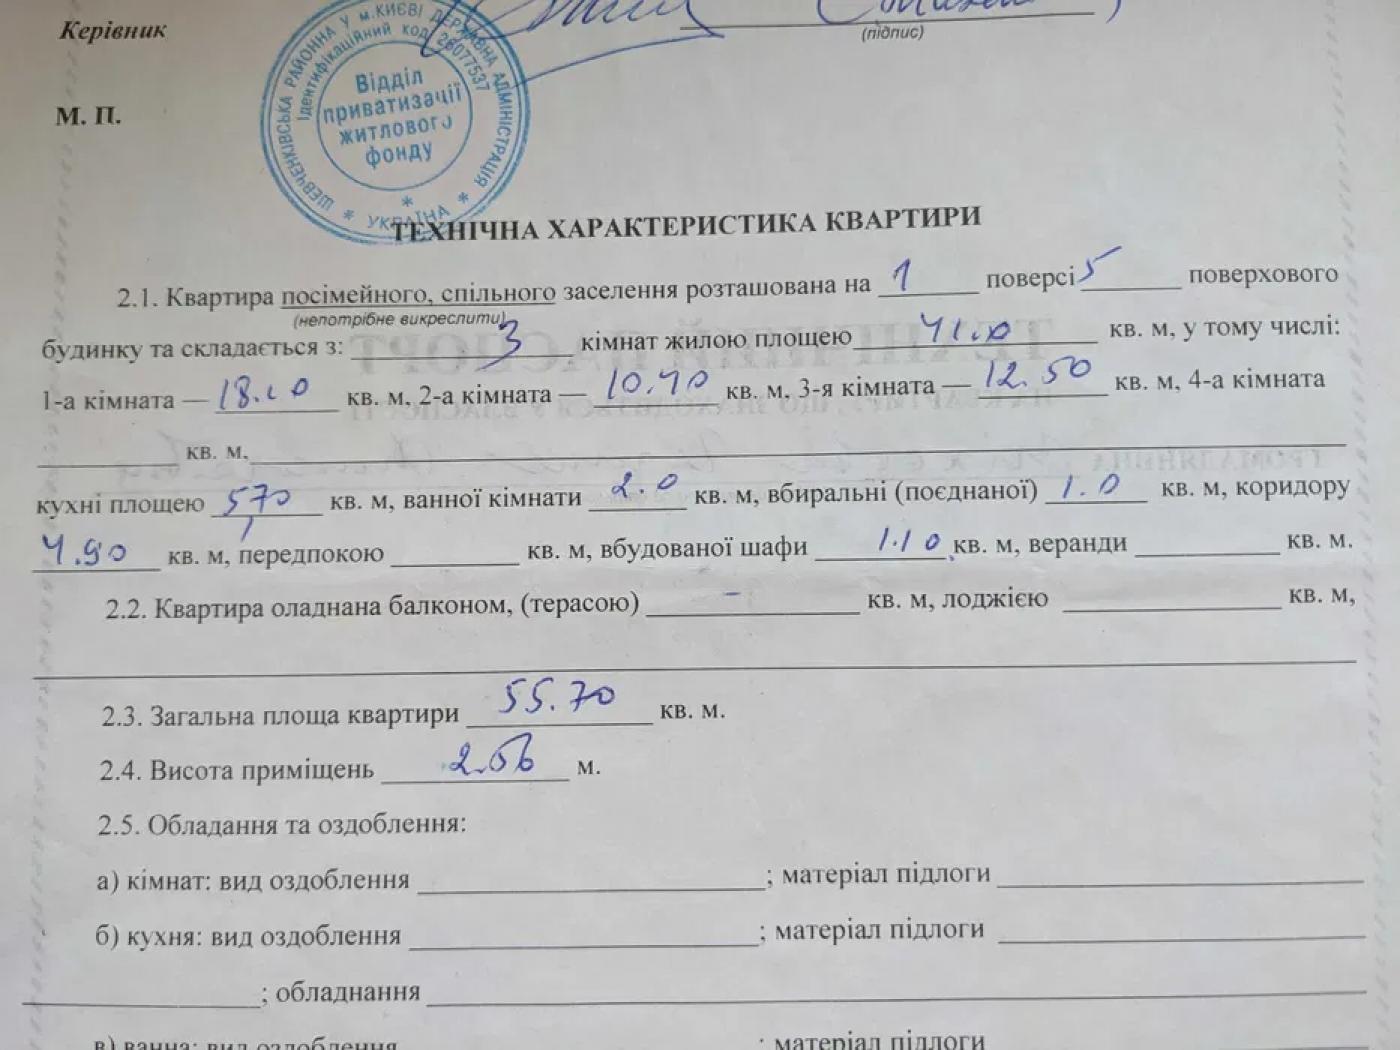 Керівник
(підпис)
М. П.
ШЕВЧЕНКІВСЬКА РАЙОННА У м.КИЄВІ ДЕРЖАВНА АДМІНІСТРАЦІЯ
* УКРАЇНА *
Ідентифікаційний код 26077537
Відділ
приватизації
житлового
фонду
*
ТЕХНІЧНА ХАРАКТЕРИСТИКА КВАРТИРИ
2.1. Квартира посімейного, спільного заселення розташована на 1 поверсі 5 поверхового
(непотрібне викреслити)
будинку та складається з: 3 кімнат жилою площею 41.0 кв. м, у тому числі:
1-а кімната — кв. м, 2-а кімната — 10.40 кв. м, 3-я кімната — 12.50 кв. м, 4-а кімната
кв. м,
кухні площею 5,70 кв. м, ванної кімнати 2.0 кв. м, вбиральні (поєднаної) 1.0 кв. м, коридору
4.90 кв. м, передпокою кв. м, вбудованої шафи 1.10 кв. м, веранди кв. м.
2.2. Квартира оладнана балконом, (терасою) - кв. м, лоджією кв. м,
2.3. Загальна площа квартири 55.70 кв. м.
2.4. Висота приміщень м.
2.5. Обладання та оздоблення:
а) кімнат: вид оздоблення ; матеріал підлоги
б) кухня: вид оздоблення ; матеріал підлоги
; обладнання
в) ванна: вид оздоблення ; матеріал підлоги